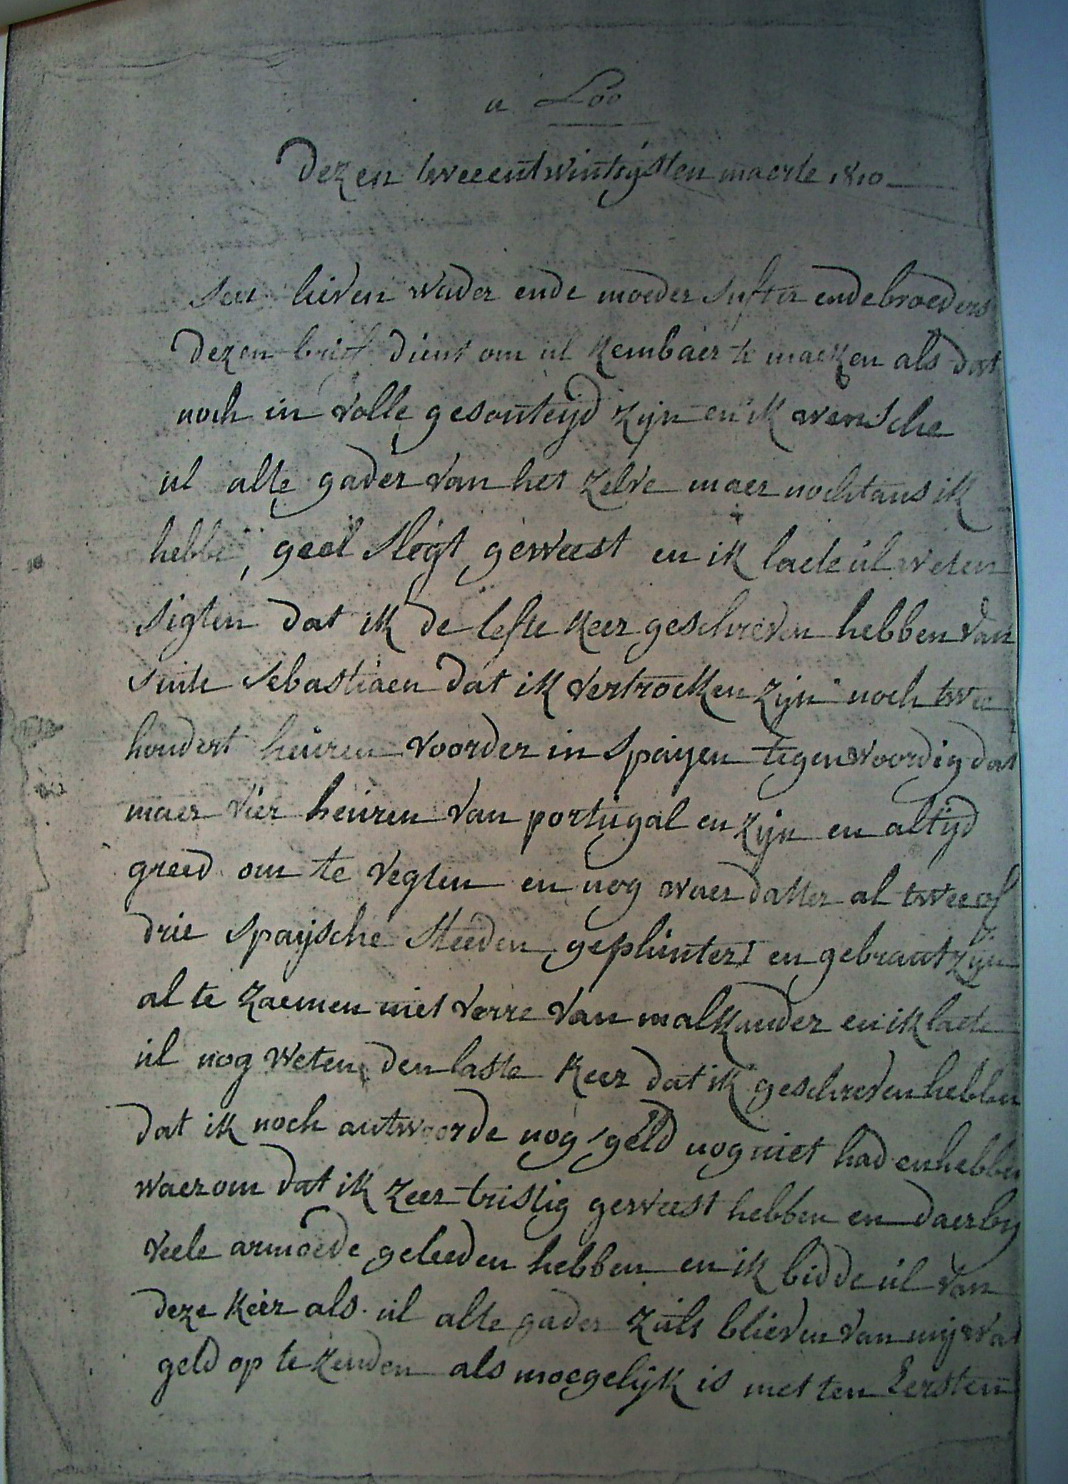 a Loo
Dezen tweeentwintigsten maerte 1810
Seer lieven vader ende moeder suster ende broeders
Dezen brief dient om ul kenbaer te maeken als dat
noch in volle gesonteyd zyn en ik wensche
ul alle gader van het zelve maer nochtans ik
hebbe geel slegt geweest en ik laete ul weten
sigten dat ik de leste keer geschreven hebben van
sinte sebastiaen dat ik vertrocken zyn noch twee
hondert heuren voorder in spayen tegenwoordig dat
maer vier heuren van portugal en zyn en altyd
greed om te vegten en nog waer datter al twee of
drie spaysche steeden geplundert en gebrant zyn
al te zaemen niet verre van malkander en ik laete
ul nog weten den laste keer dat ik geschreven hebben
dat ik noch antwoorde nog geld nog niet had en hebben
waerom dat ik zeer tristig geweest hebben en daer by
veele armoede geleeden hebben en ik bidde ul van
deze keer als ul alle gader zuls blieven van my wat
geld op te zenden als moegelyk is met ten eersten